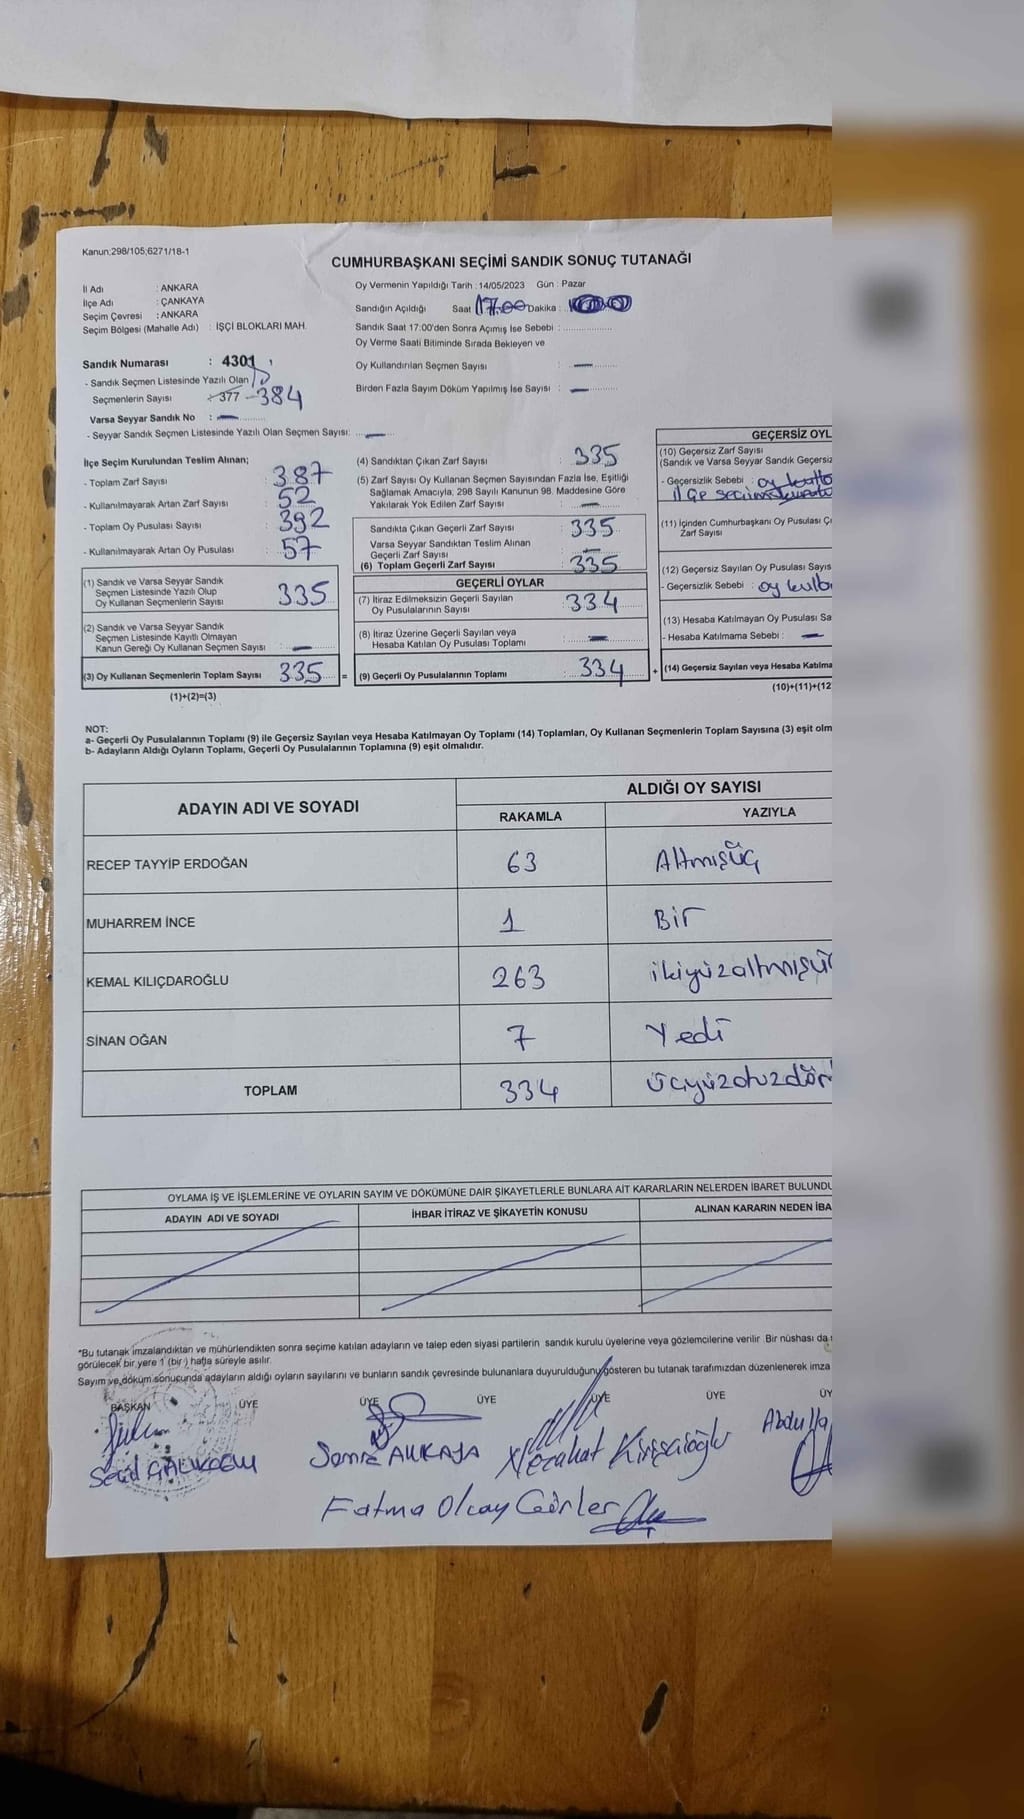 Kanun;298/105;6271/18-1
CUMHURBAŞKANI SEÇİMİ SANDIK SONUÇ TUTANAĞI
İl Adı : ANKARA
İlçe Adı : ÇANKAYA
Seçim Çevresi : ANKARA
Seçim Bölgesi (Mahalle Adı) : İŞÇİ BLOKLARI MAH.
Oy Vermenin Yapıldığı Tarih : 14/05/2023 Gün : Pazar
Sandığın Açıldığı Saat 17.00 Dakika :
Sandık Saat 17:00'den Sonra Açımış İse Sebebi :
Oy Verme Saati Bitiminde Sırada Bekleyen ve
Oy Kullandırılan Seçmen Sayısı : —
Birden Fazla Sayım Döküm Yapılmış İse Sayısı : —
Sandık Numarası : 4301
- Sandık Seçmen Listesinde Yazılı Olan
Seçmenlerin Sayısı : 377 - 384
Varsa Seyyar Sandık No : —
- Seyyar Sandık Seçmen Listesinde Yazılı Olan Seçmen Sayısı: —
İlçe Seçim Kurulundan Teslim Alınan;
- Toplam Zarf Sayısı : 387
- Kullanılmayarak Artan Zarf Sayısı : 52
- Toplam Oy Pusulası Sayısı : 392
- Kullanılmayarak Artan Oy Pusulası : 57
(1) Sandık ve Varsa Seyyar Sandık
Seçmen Listesinde Yazılı Olup
Oy Kullanan Seçmenlerin Sayısı : 335
(2) Sandık ve Varsa Seyyar Sandık
Seçmen Listesinde Kayıtlı Olmayan
Kanun Gereği Oy Kullanan Seçmen Sayısı : —
(3) Oy Kullanan Seçmenlerin Toplam Sayısı 335 =
(1)+(2)=(3)
(4) Sandıktan Çıkan Zarf Sayısı : 335
(5) Zarf Sayısı Oy Kullanan Seçmen Sayısından Fazla İse, Eşitliği
Sağlamak Amacıyla, 298 Sayılı Kanunun 98. Maddesine Göre
Yakılarak Yok Edilen Zarf Sayısı : —
Sandıkta Çıkan Geçerli Zarf Sayısı : 335
Varsa Seyyar Sandıktan Teslim Alınan
Geçerli Zarf Sayısı : —
(6) Toplam Geçerli Zarf Sayısı : 335
GEÇERLİ OYLAR
(7) İtiraz Edilmeksizin Geçerli Sayılan
Oy Pusulalarının Sayısı : 334
(8) İtiraz Üzerine Geçerli Sayılan veya
Hesaba Katılan Oy Pusulası Toplamı : —
(9) Geçerli Oy Pusulalarının Toplamı : 334 +
GEÇERSİZ OYL
(10) Geçersiz Zarf Sayısı
(Sandık ve Varsa Seyyar Sandık Geçersiz
- Geçersizlik Sebebi : oy
(11) İçinden Cumhurbaşkanı Oy Pusulası Çı
Zarf Sayısı
(12) Geçersiz Sayılan Oy Pusulası Sayıs
- Geçersizlik Sebebi : oy
(13) Hesaba Katılmayan Oy Pusulası Sa
- Hesaba Katılmama Sebebi : —
(14) Geçersiz Sayılan veya Hesaba Katılma
(10)+(11)+(12
NOT:
a- Geçerli Oy Pusulalarının Toplamı (9) ile Geçersiz Sayılan veya Hesaba Katılmayan Oy Toplamı (14) Toplamları, Oy Kullanan Seçmenlerin Toplam Sayısına (3) eşit olm
b- Adayların Aldığı Oyların Toplamı, Geçerli Oy Pusulalarının Toplamına (9) eşit olmalıdır.
ADAYIN ADI VE SOYADI ALDIĞI OY SAYISI
RAKAMLA YAZIYLA
RECEP TAYYİP ERDOĞAN 63 Altmışüç
MUHARREM İNCE 1 Bir
KEMAL KILIÇDAROĞLU 263 ikiyüzaltmışü
SİNAN OĞAN 7 Yedi
TOPLAM 334 üçyüzotuzdör
OYLAMA İŞ VE İŞLEMLERİNE VE OYLARIN SAYIM VE DÖKÜMÜNE DAİR ŞİKAYETLERLE BUNLARA AİT KARARLARIN NELERDEN İBARET BULUNDU
ADAYIN ADI VE SOYADI İHBAR İTİRAZ VE ŞİKAYETİN KONUSU ALINAN KARARIN NEDEN İBA
*Bu tutanak imzalandıktan ve mühürlendikten sonra seçime katılan adayların ve talep eden siyasi partilerin sandık kurulu üyelerine veya gözlemcilerine verilir. Bir nüshası da
görülecek bir yere 1 (bir) hafta süreyle asılır.
Sayım ve döküm sonucunda adayların aldığı oyların sayılarını ve bunların sandık çevresinde bulunanlara duyurulduğunu gösteren bu tutanak tarafımızdan düzenlenerek imza
BAŞKAN ÜYE ÜYE ÜYE ÜYE ÜYE ÜY
Abdulla
Fatma Olcay Gürler